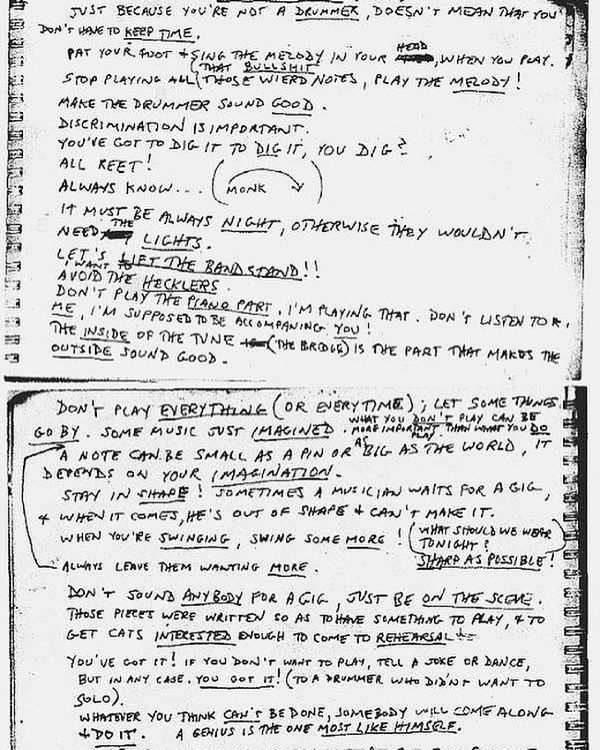 JUST BECAUSE YOU'RE NOT A DRUMMER, DOESN'T MEAN THAT YOU
DON'T HAVE TO KEEP TIME.
PAT YOUR FOOT & SING THE MELODY IN YOUR HEAD, WHEN YOU PLAY.
STOP PLAYING ALL (THAT BULLSHIT) THOSE WIERD NOTES, PLAY THE MELODY!
MAKE THE DRUMMER SOUND GOOD.
DISCRIMINATION IS IMPORTANT.
YOU'VE GOT TO DIG IT TO DIG IT, YOU DIG?
ALL REET!
ALWAYS KNOW... (MONK)
IT MUST BE ALWAYS NIGHT, OTHERWISE THEY WOULDN'T
NEED THE LIGHTS.
LET'S LIFT THE BAND STAND!!
I WANT TO AVOID THE HECKLERS.
DON'T PLAY THE PIANO PART, I'M PLAYING THAT. DON'T LISTEN TO
ME, I'M SUPPOSED TO BE ACCOMPANING YOU!
THE INSIDE OF THE TUNE (THE BRIDGE) IS THE PART THAT MAKES THE
OUTSIDE SOUND GOOD.
DON'T PLAY EVERYTHING (OR EVERYTIME); LET SOME THINGS
GO BY. SOME MUSIC JUST IMAGINED. WHAT YOU DON'T PLAY CAN BE
MORE IMPORTANT THAN WHAT YOU DO PLAY.
A NOTE CAN BE SMALL AS A PIN OR AS BIG AS THE WORLD, IT
DEPENDS ON YOUR IMAGINATION.
STAY IN SHAPE! SOMETIMES A MUSICIAN WAITS FOR A GIG,
& WHEN IT COMES, HE'S OUT OF SHAPE & CAN'T MAKE IT.
WHEN YOU'RE SWINGING, SWING SOME MORE!
(WHAT SHOULD WE WEAR
TONIGHT?
SHARP AS POSSIBLE!)
ALWAYS LEAVE THEM WANTING MORE.
DON'T SOUND ANYBODY FOR A GIG, JUST BE ON THE SCENE.
THOSE PIECES WERE WRITTEN SO AS TO HAVE SOMETHING TO PLAY, & TO
GET CATS INTERESTED ENOUGH TO COME TO REHEARSAL.
YOU'VE GOT IT! IF YOU DON'T WANT TO PLAY, TELL A JOKE OR DANCE,
BUT IN ANY CASE, YOU GOT IT! (TO A DRUMMER WHO DIDN'T WANT TO
SOLO).
WHATEVER YOU THINK CAN'T BE DONE, SOMEBODY WILL COME ALONG
& DO IT. A GENIUS IS THE ONE MOST LIKE HIMSELF.